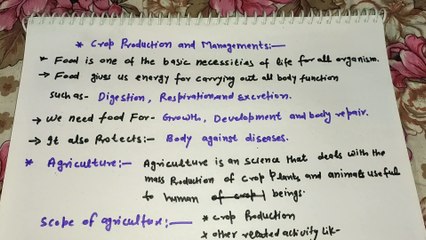 * Crop Production and Managements:—
* Food is one of the basic necessities of life for all organism.
→ Food gives us energy for carrying out all body function
such as- Digestion, Respiration and Excretion.
→ We need food For- Growth, Development and body repair.
→ It also Protects:- Body against diseases.
* Agriculture:- Agriculture is an science that deals with the
mass Production of crop Plants and animals useful
to human of crop beings.
Scope of agriculture:— * crop Production
* other related activity lik-